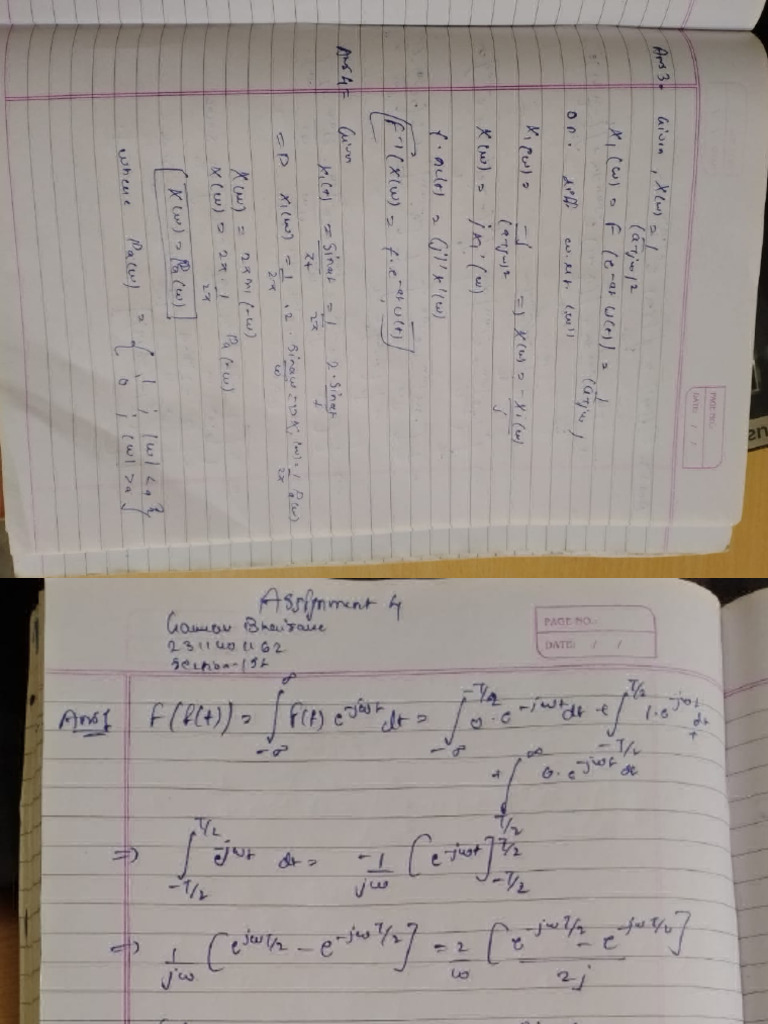 Ans 3. Given, X(ω) = 1/(a+jω)²
X₁(ω) = F(e^-at u(t)) = 1/(a+jω)
on. diff w.r.t. (ω)
X₁'(ω) = -j/(a+jω)² => X(ω) = -X₁'(ω)/j
X(ω) = jX₁'(ω)
t. x₁(t) = (j)' X'(ω)
[F⁻¹(X(ω) = t. e^-at u(t)]
Ans 4 = Given
x₁(t) = Sinat/πt = 1/2π 2. Sinat/t
=> X₁(ω) = 1/2π . 2. Sinaω/ω = 1/2π Pa(ω)
X(ω) = 2πx₁(-ω)
X(ω) = 2π. 1/2π Pa(-ω)
[X(ω) = Pa(ω)]
where Pa(ω) = { 1 ; |ω| < a
0 ; |ω| > a }
PAGE NO.:
DATE: / /
Assignment 4
2311401162
Section-
PAGE NO.:
DATE: / /
Ans1 F(f(t)) = ∫_-∞^∞ f(t) e^-jωt dt = ∫_-∞^-T/2 0. e^-jωt dt + ∫_-T/2^T/2 1. e^-jωt dt
+ ∫_T/2^∞ 0. e^-jωt dt
=> ∫_-T/2^T/2 e^-jωt dt = -1/jω [e^-jωt]_-T/2^T/2
=> 1/jω [e^jωT/2 - e^-jωT/2] = 2/ω [e^-jωT/2 - e^-jωT/2 / 2j]